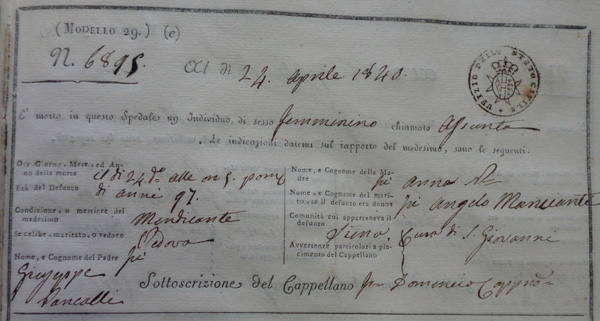 (MODELLO 29.) (c)
N. 6895.
Ai di 24. aprile 1840.
UFIZIO DELLO STATO CIVILE
E' morto in questo Spedale un Individuo, di sesso femminino chiamato Assunta
Le indicazioni datemi sul rapporto del medesimo, sono le seguenti.
Ora Giorno, Mese, ed An-
no della morte il dì 24. do. alle or. 5. pom.
Età del Defunto di anni 97.
Condizione, o mestiere del
medesimo Mendicante
Se celibe, maritato, o vedovo Vedova
Nome, e Cognome del Padre
Giuseppe
Pancalli
Nome, e Cognome della Ma-
dre Anna N.
Nome, e Cognome del mari-
to, se il defunto era donna Angelo
Comunità cui apparteneva il
defunto Siena, Cura di S. Giovanni
Avvertenze particolari a pia-
cimento del Cappellano
Sottoscrizione del Cappellano Domenico